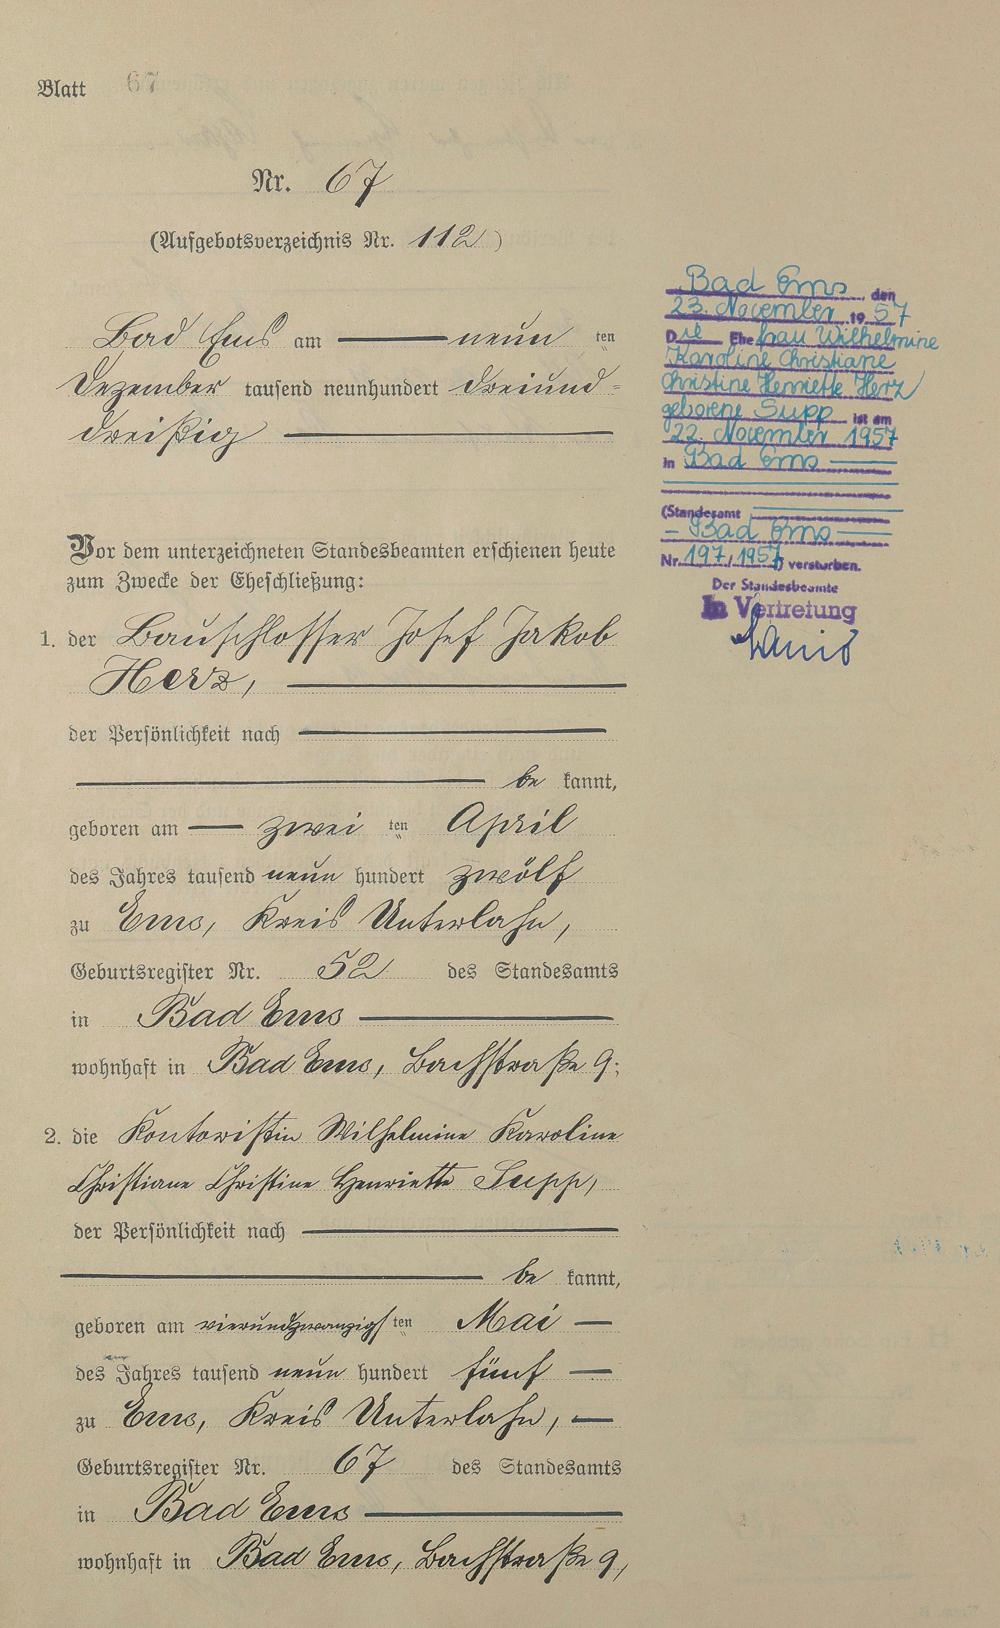 Blatt 67
Nr. 67
(Aufgebotsverzeichnis Nr. 112)
Bad Ems am — neun ten
Dezember tausend neunhundert dreiund-
dreißig —
Vor dem unterzeichneten Standesbeamten erschienen heute
zum Zwecke der Eheschließung:
1. der Bauschlosser Josef Jakob
Herz, —
der Persönlichkeit nach —
— be kannt,
geboren am — zwei ten April
des Jahres tausend neun hundert zwölf
zu Ems, Kreis Unterlahn,
Geburtsregister Nr. 52 des Standesamts
in Bad Ems —
wohnhaft in Bad Ems, Bachstraße 9;
2. die Kontoristin Wilhelmine Karoline
Christiane Christine Henriette Supp,
der Persönlichkeit nach —
— be kannt,
geboren am vierundzwanzigs ten Mai —
des Jahres tausend neun hundert fünf —
zu Ems, Kreis Unterlahn, —
Geburtsregister Nr. 67 des Standesamts
in Bad Ems —
wohnhaft in Bad Ems, Bachstraße 9,
Bad Ems, den
23. November 1957
Die Ehefrau Wilhelmine
Karoline Christiane
Christine Henriette Herz
geborene Supp ist am
22. November 1957
in Bad Ems —
(Standesamt —
— Bad Ems —
Nr. 197/1957 verstorben.
Der Standesbeamte
In Vertretung